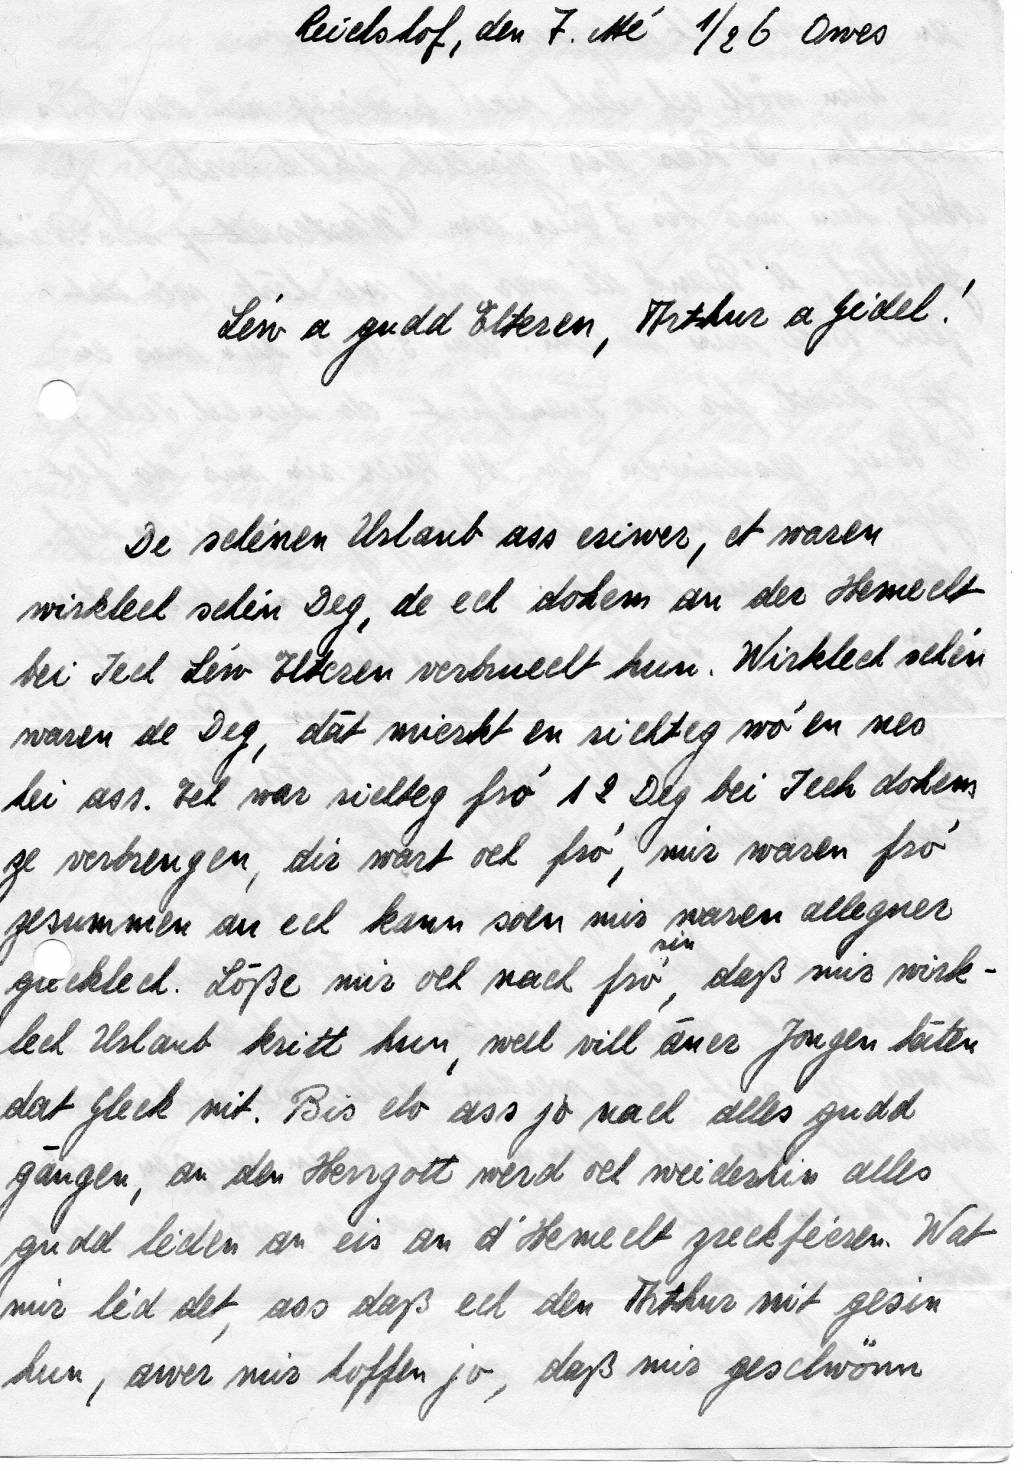 Reichshof, den 7. Mé 1/2 6 Owes
Léw a gudd Elteren, Arthur a Gidel!
De schéinen Urlaub ass eriwer, et waren
wirklech schéin Deg, de ech dohem an der Hemecht
bei Iech Léw Elteren verbruecht hun. Wirklech schéin
waren de Deg, dāt mierkt en richteg wó en nes
hei ass. Ech war richteg fró 12 Deg bei Iech dohem
ze verbrengen, dir wart och fró, mir waren fró
zesummen an ech kann soen mir waren alleguer
glecklech. Lôße mir och nach fró sin, daß mir wirk-
lech Urlaub kritt hun, well vill āner Jongen hāten
dat Gleck nit. Bis elo ass jo nach alles gudd
gāngen, an den Herrgott werd och weiderhin alles
gudd léden an eis an d'Hemecht zreckféieren. Wat
mir léd det, ass daß ech den Arthur nit gesin
hun, awer mir hoffen jo, daß mir geschwönn